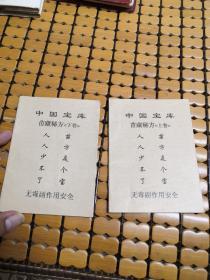 中国宝库
首藏秘方(下卷)
方是个宝
人人少不了
无毒副作用安全
中国宝库
首藏秘方(上卷)
方是个宝
人人少不了
无毒副作用安全